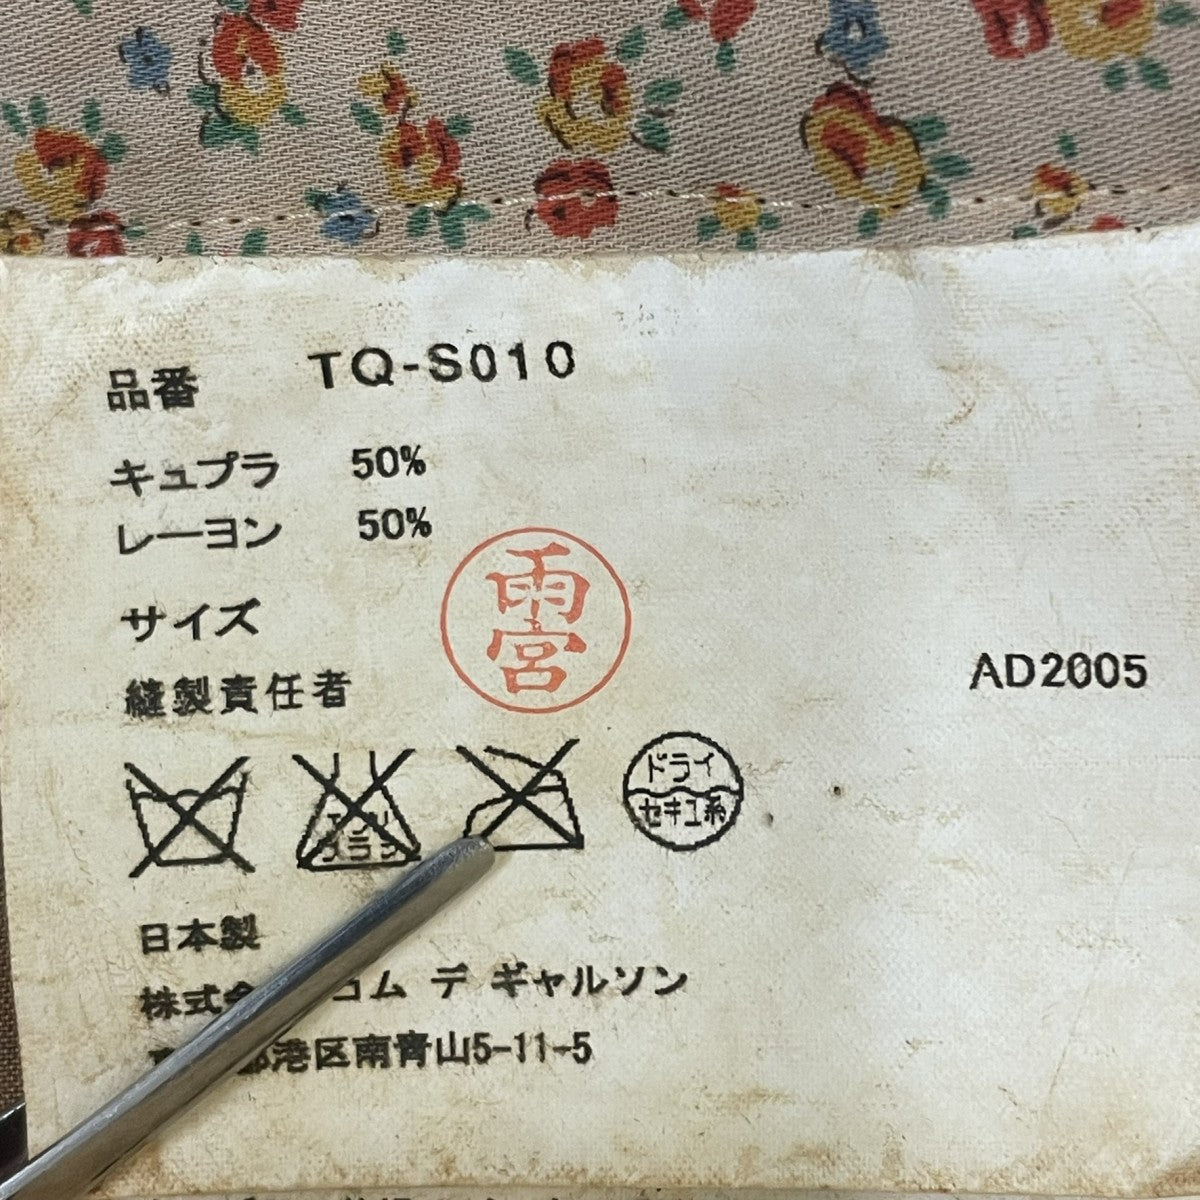 品番 TQ-S010
キュプラ 50%
レーヨン 50%
サイズ
縫製責任者
雨宮
AD2005
エンソ
サラシ
ドライ
セキユ系
日本製
株式会 コム デ ギャルソン
都港区南青山5-11-5